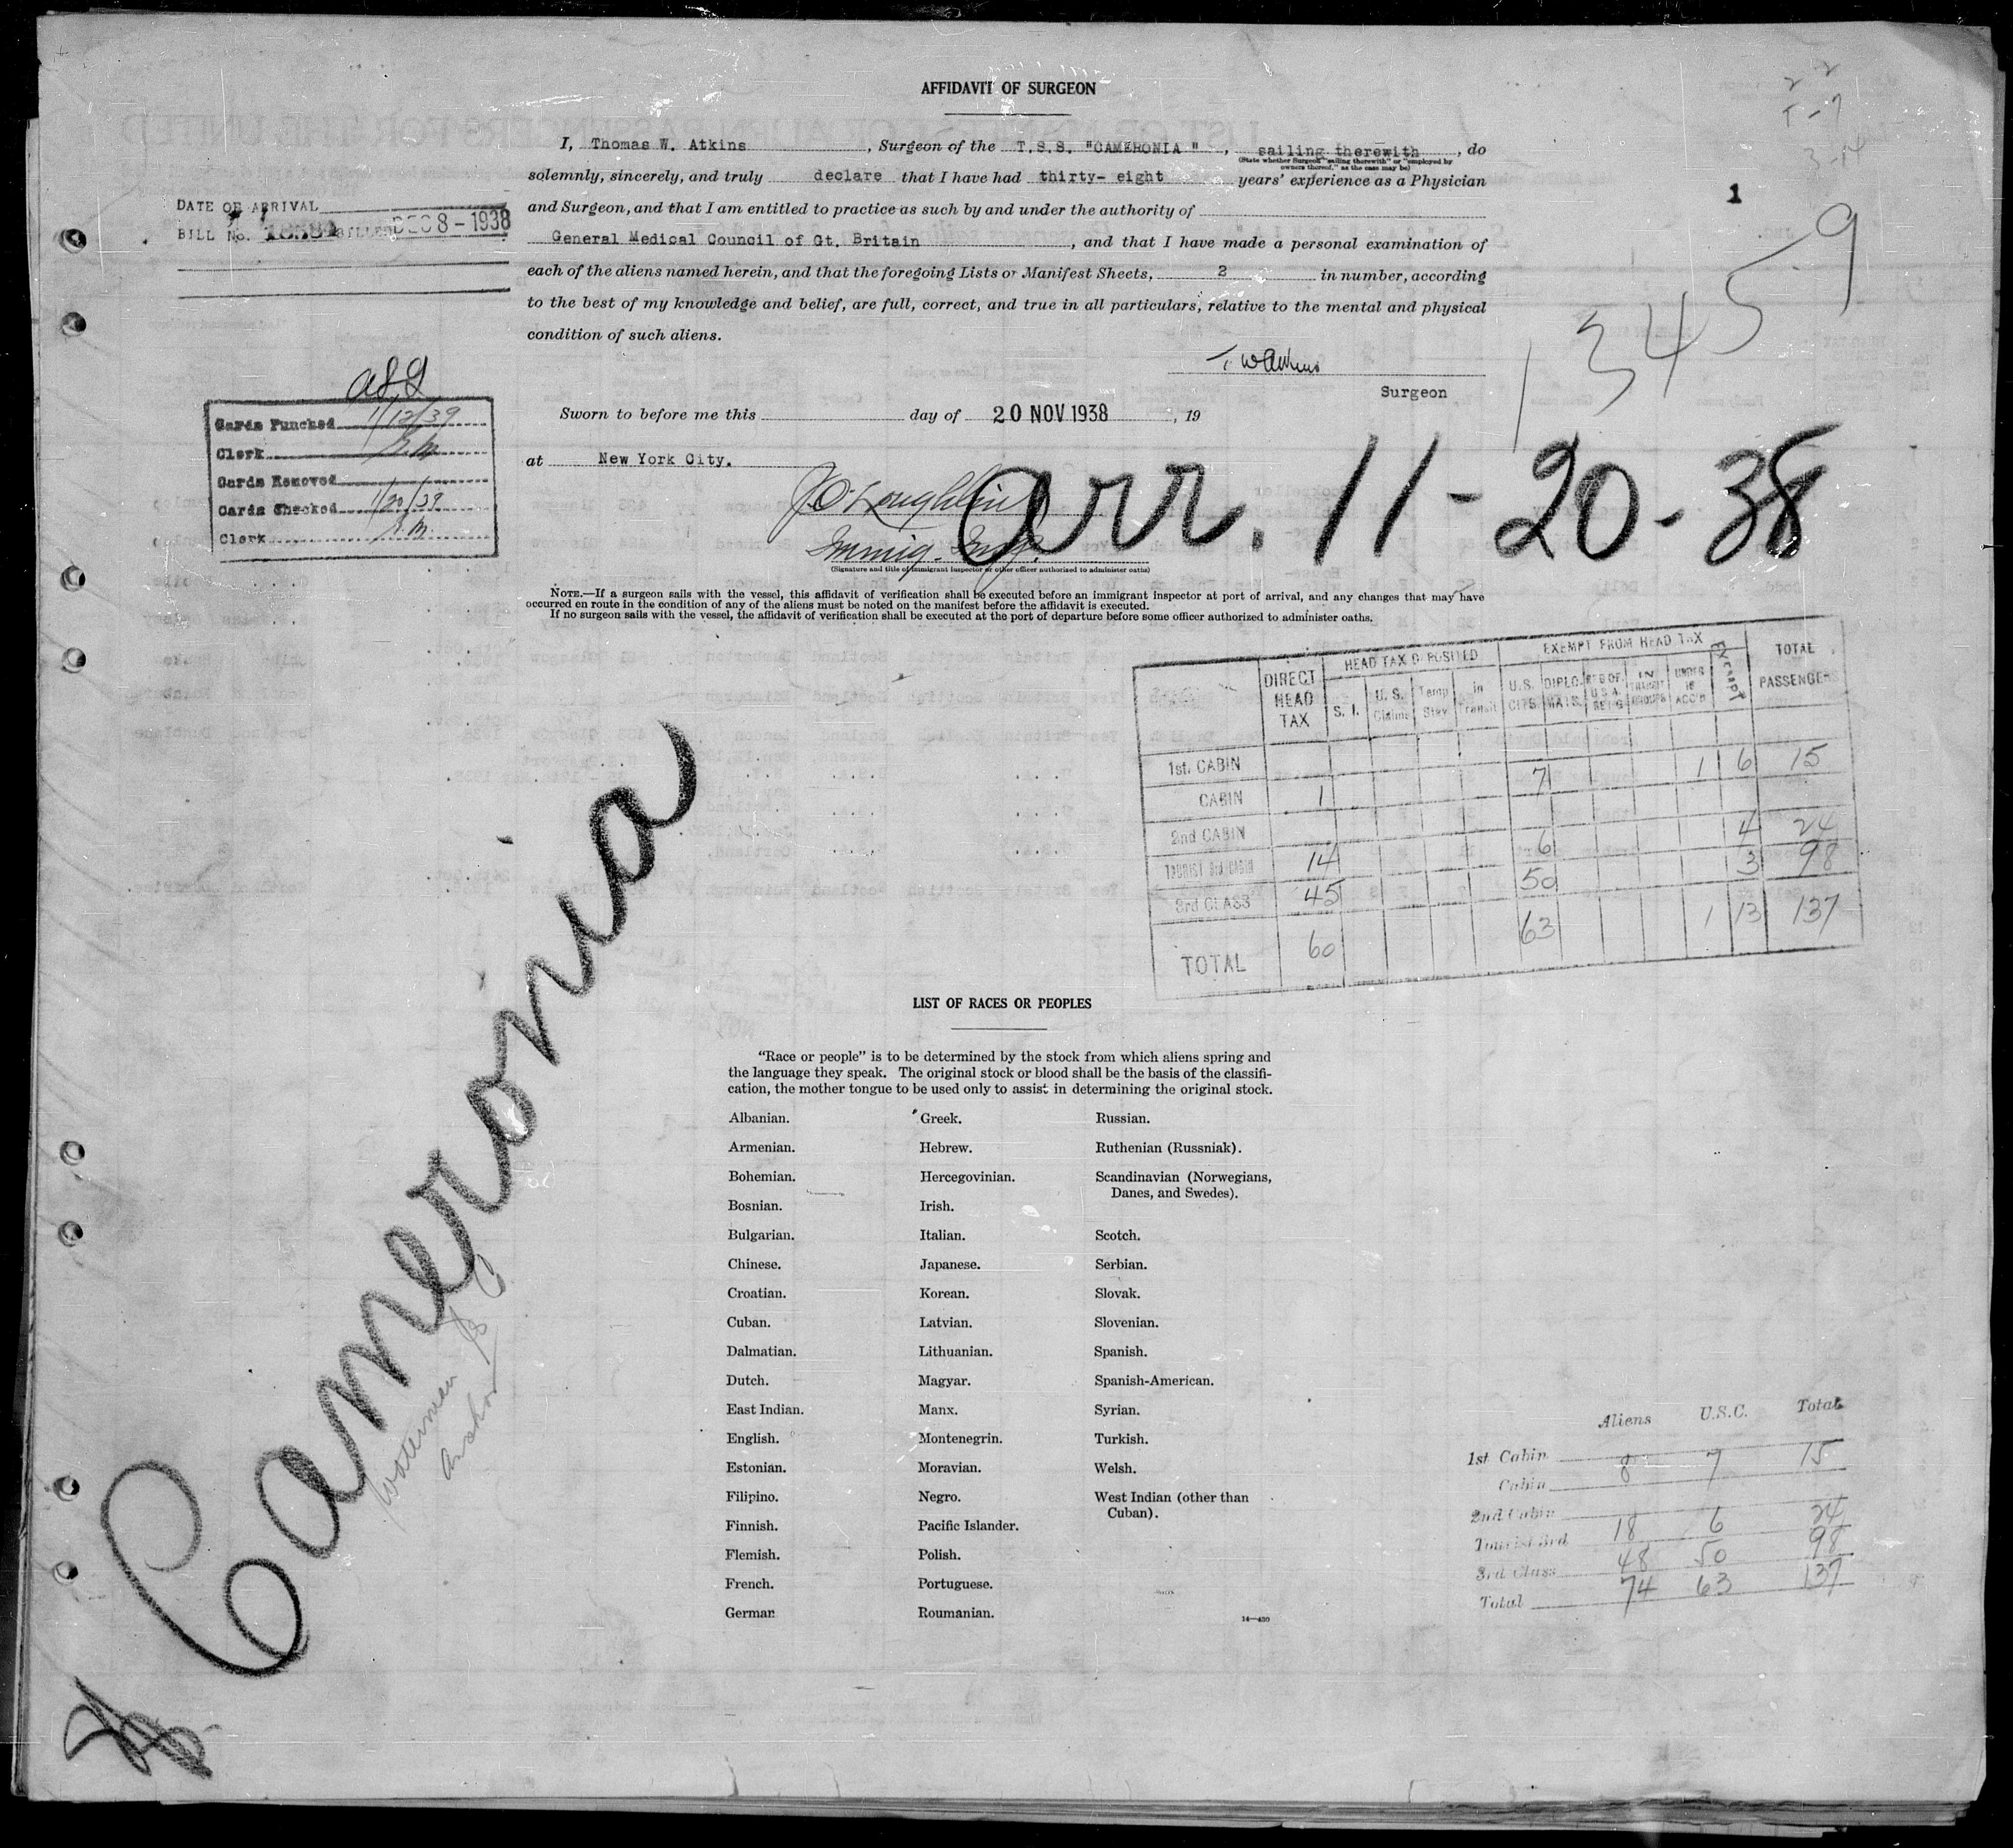 AFFIDAVIT OF SURGEON
I, Thomas W. Atkins, Surgeon of the T.S.S. "CAMERONIA ", sailing therewith, do
(State whether Surgeon "sailing therewith" or "employed by
owners thereof," as the case may be)
solemnly, sincerely, and truly declare that I have had thirty- eight years' experience as a Physician
and Surgeon, and that I am entitled to practice as such by and under the authority of
General Medical Council of Gt. Britain, and that I have made a personal examination of
each of the aliens named herein, and that the foregoing Lists or Manifest Sheets, 2 in number, according
to the best of my knowledge and belief, are full, correct, and true in all particulars, relative to the mental and physical
condition of such aliens.
T W Atkins
Surgeon
Sworn to before me this day of 20 NOV 1938, 19
at New York City.
J O'Loughlin
Immig. Insp.
(Signature and title of immigrant inspector or other officer authorized to administer oaths)
arr. 11-20-38
1
13459
DATE OF ARRIVAL
BILL No. BILLED DEC 8 - 1938
Cards Punched 1/12/39
Clerk
Cards Removed
Cards Checked 1/20/39
Clerk
NOTE.—If a surgeon sails with the vessel, this affidavit of verification shall be executed before an immigrant inspector at port of arrival, and any changes that may have
occurred en route in the condition of any of the aliens must be noted on the manifest before the affidavit is executed.
If no surgeon sails with the vessel, the affidavit of verification shall be executed at the port of departure before some officer authorized to administer oaths.
HEAD TAX DEPOSITED EXEMPT FROM HEAD TAX
DIRECT HEAD TAX S. I. U. S. Claims Temp Stay in Transit U.S. CITS. DIPLO. MATS. RES OF. U.S.A. BEING IN TRANSIT GROUPS UNDER 16 ACC'D Exempt TOTAL PASSENGERS
1st. CABIN
CABIN 1 7 1 6 15
2nd CABIN
TOURIST 3rd CABIN 14 6 4 24
3rd CLASS 45 50 3 98
TOTAL 60 63 1 13 137
Cameronia
Waterman
Anchor
LIST OF RACES OR PEOPLES
"Race or people" is to be determined by the stock from which aliens spring and
the language they speak. The original stock or blood shall be the basis of the classifi-
cation, the mother tongue to be used only to assist in determining the original stock.
Albanian.
Armenian.
Bohemian.
Bosnian.
Bulgarian.
Chinese.
Croatian.
Cuban.
Dalmatian.
Dutch.
East Indian.
English.
Estonian.
Filipino.
Finnish.
Flemish.
French.
German
Greek.
Hebrew.
Hercegovinian.
Irish.
Italian.
Japanese.
Korean.
Latvian.
Lithuanian.
Magyar.
Manx.
Montenegrin.
Moravian.
Negro.
Pacific Islander.
Polish.
Portuguese.
Roumanian.
Russian.
Ruthenian (Russniak).
Scandinavian (Norwegians,
Danes, and Swedes).
Scotch.
Serbian.
Slovak.
Slovenian.
Spanish.
Spanish-American.
Syrian.
Turkish.
Welsh.
West Indian (other than
Cuban).
14—430
Aliens U.S.C. Total
1st Cabin
Cabin 8 7 15
2nd Cabin
Tourist 3rd 18 6 24
3rd Class 48 50 98
Total 74 63 137